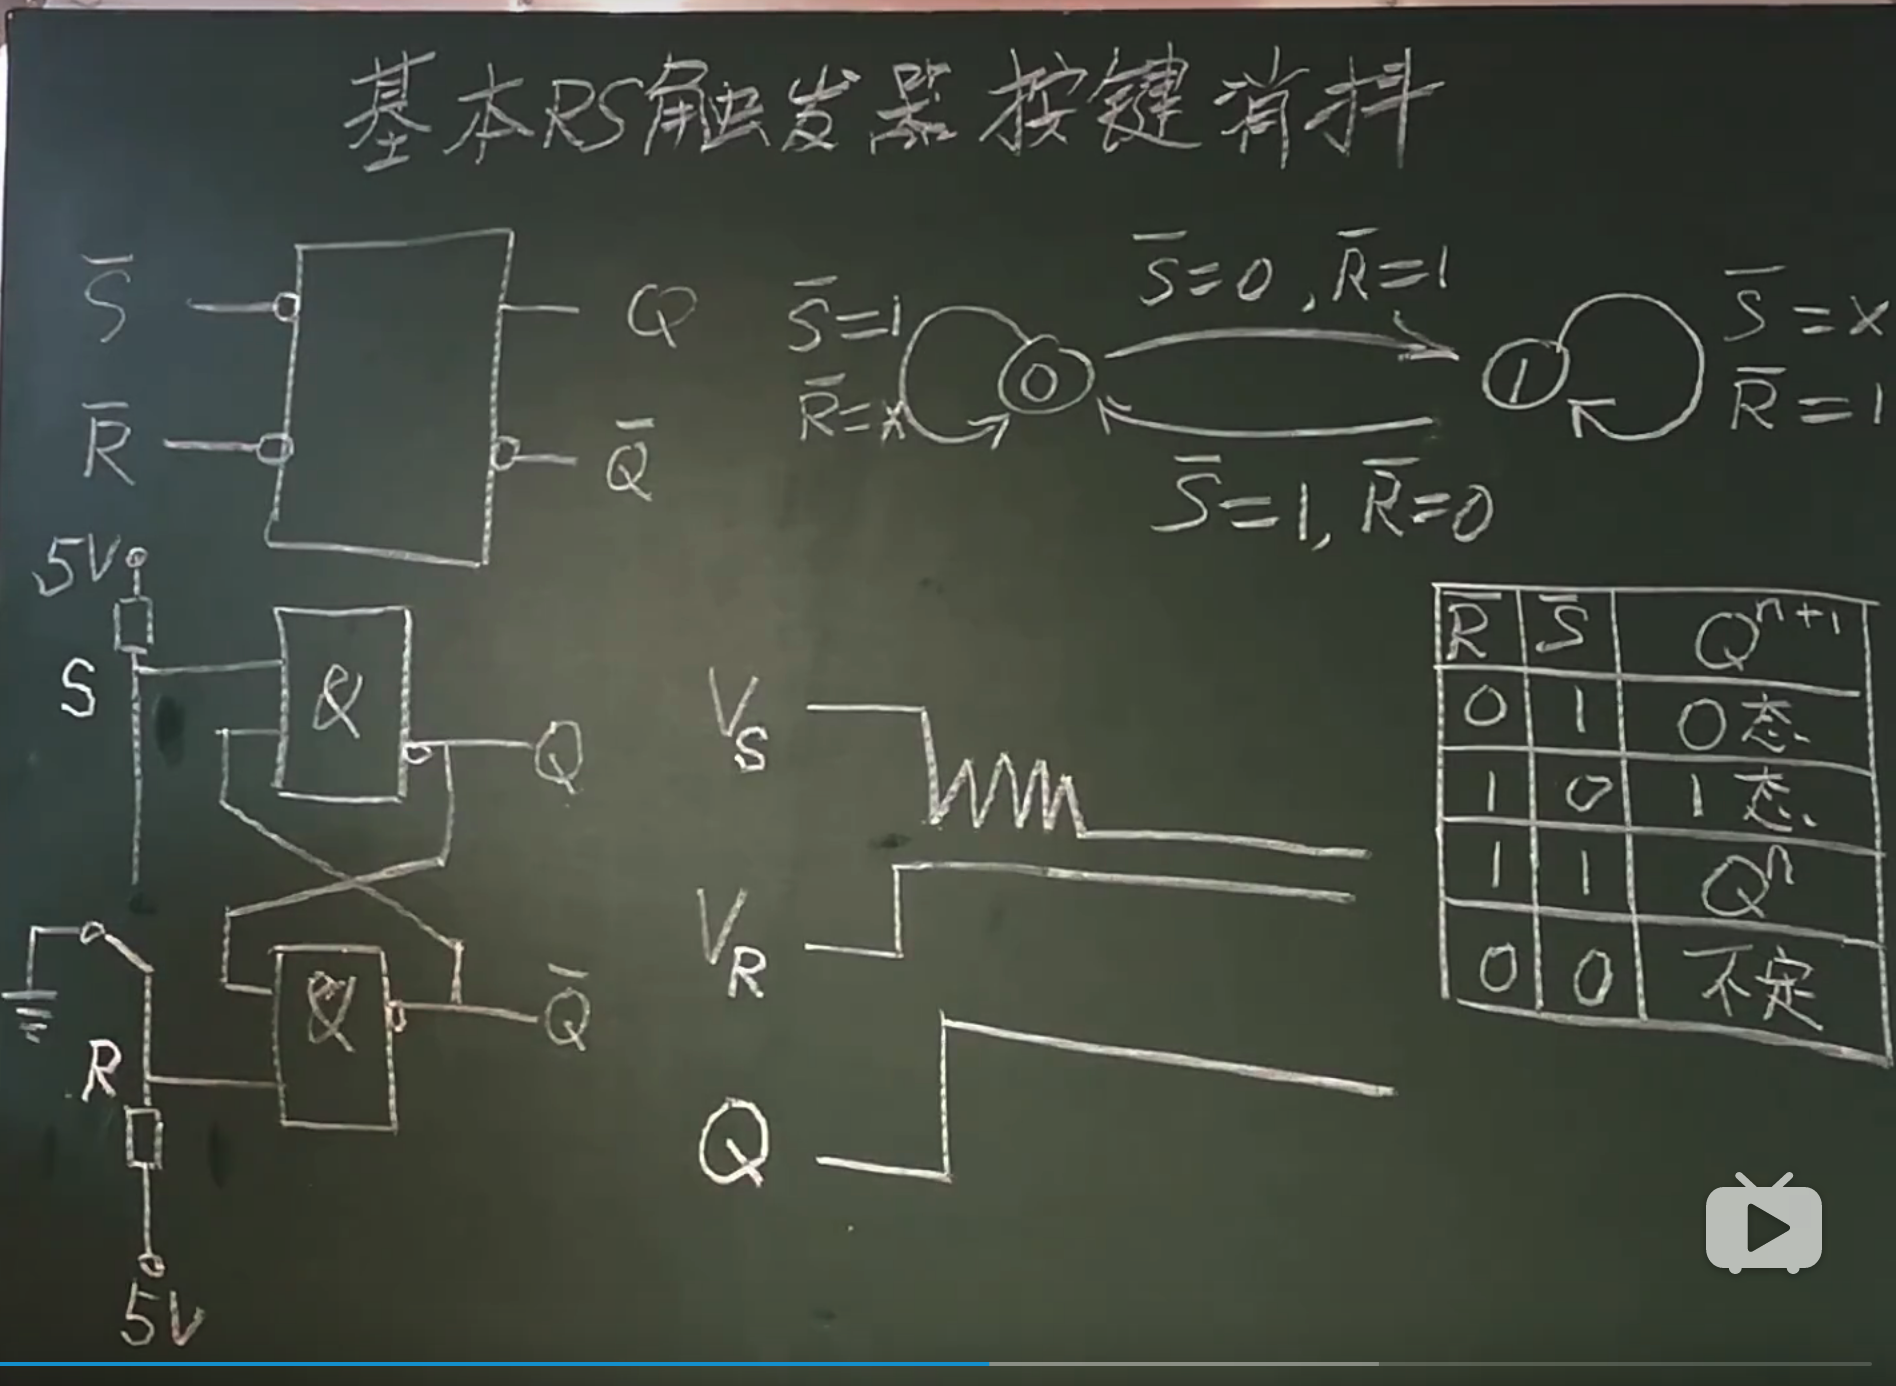 基本RS触发器按键消抖
S̄ Q
R̄ Q̄
S̄=1
R̄=x
0
S̄=0, R̄=1
1
S̄=x
R̄=1
S̄=1, R̄=0
5V
S
&
Q
R
&
Q̄
5V
V_S
V_R
Q
R̄ S̄ Qⁿ⁺¹
0 1 0态
1 0 1态
1 1 Qⁿ
0 0 不定